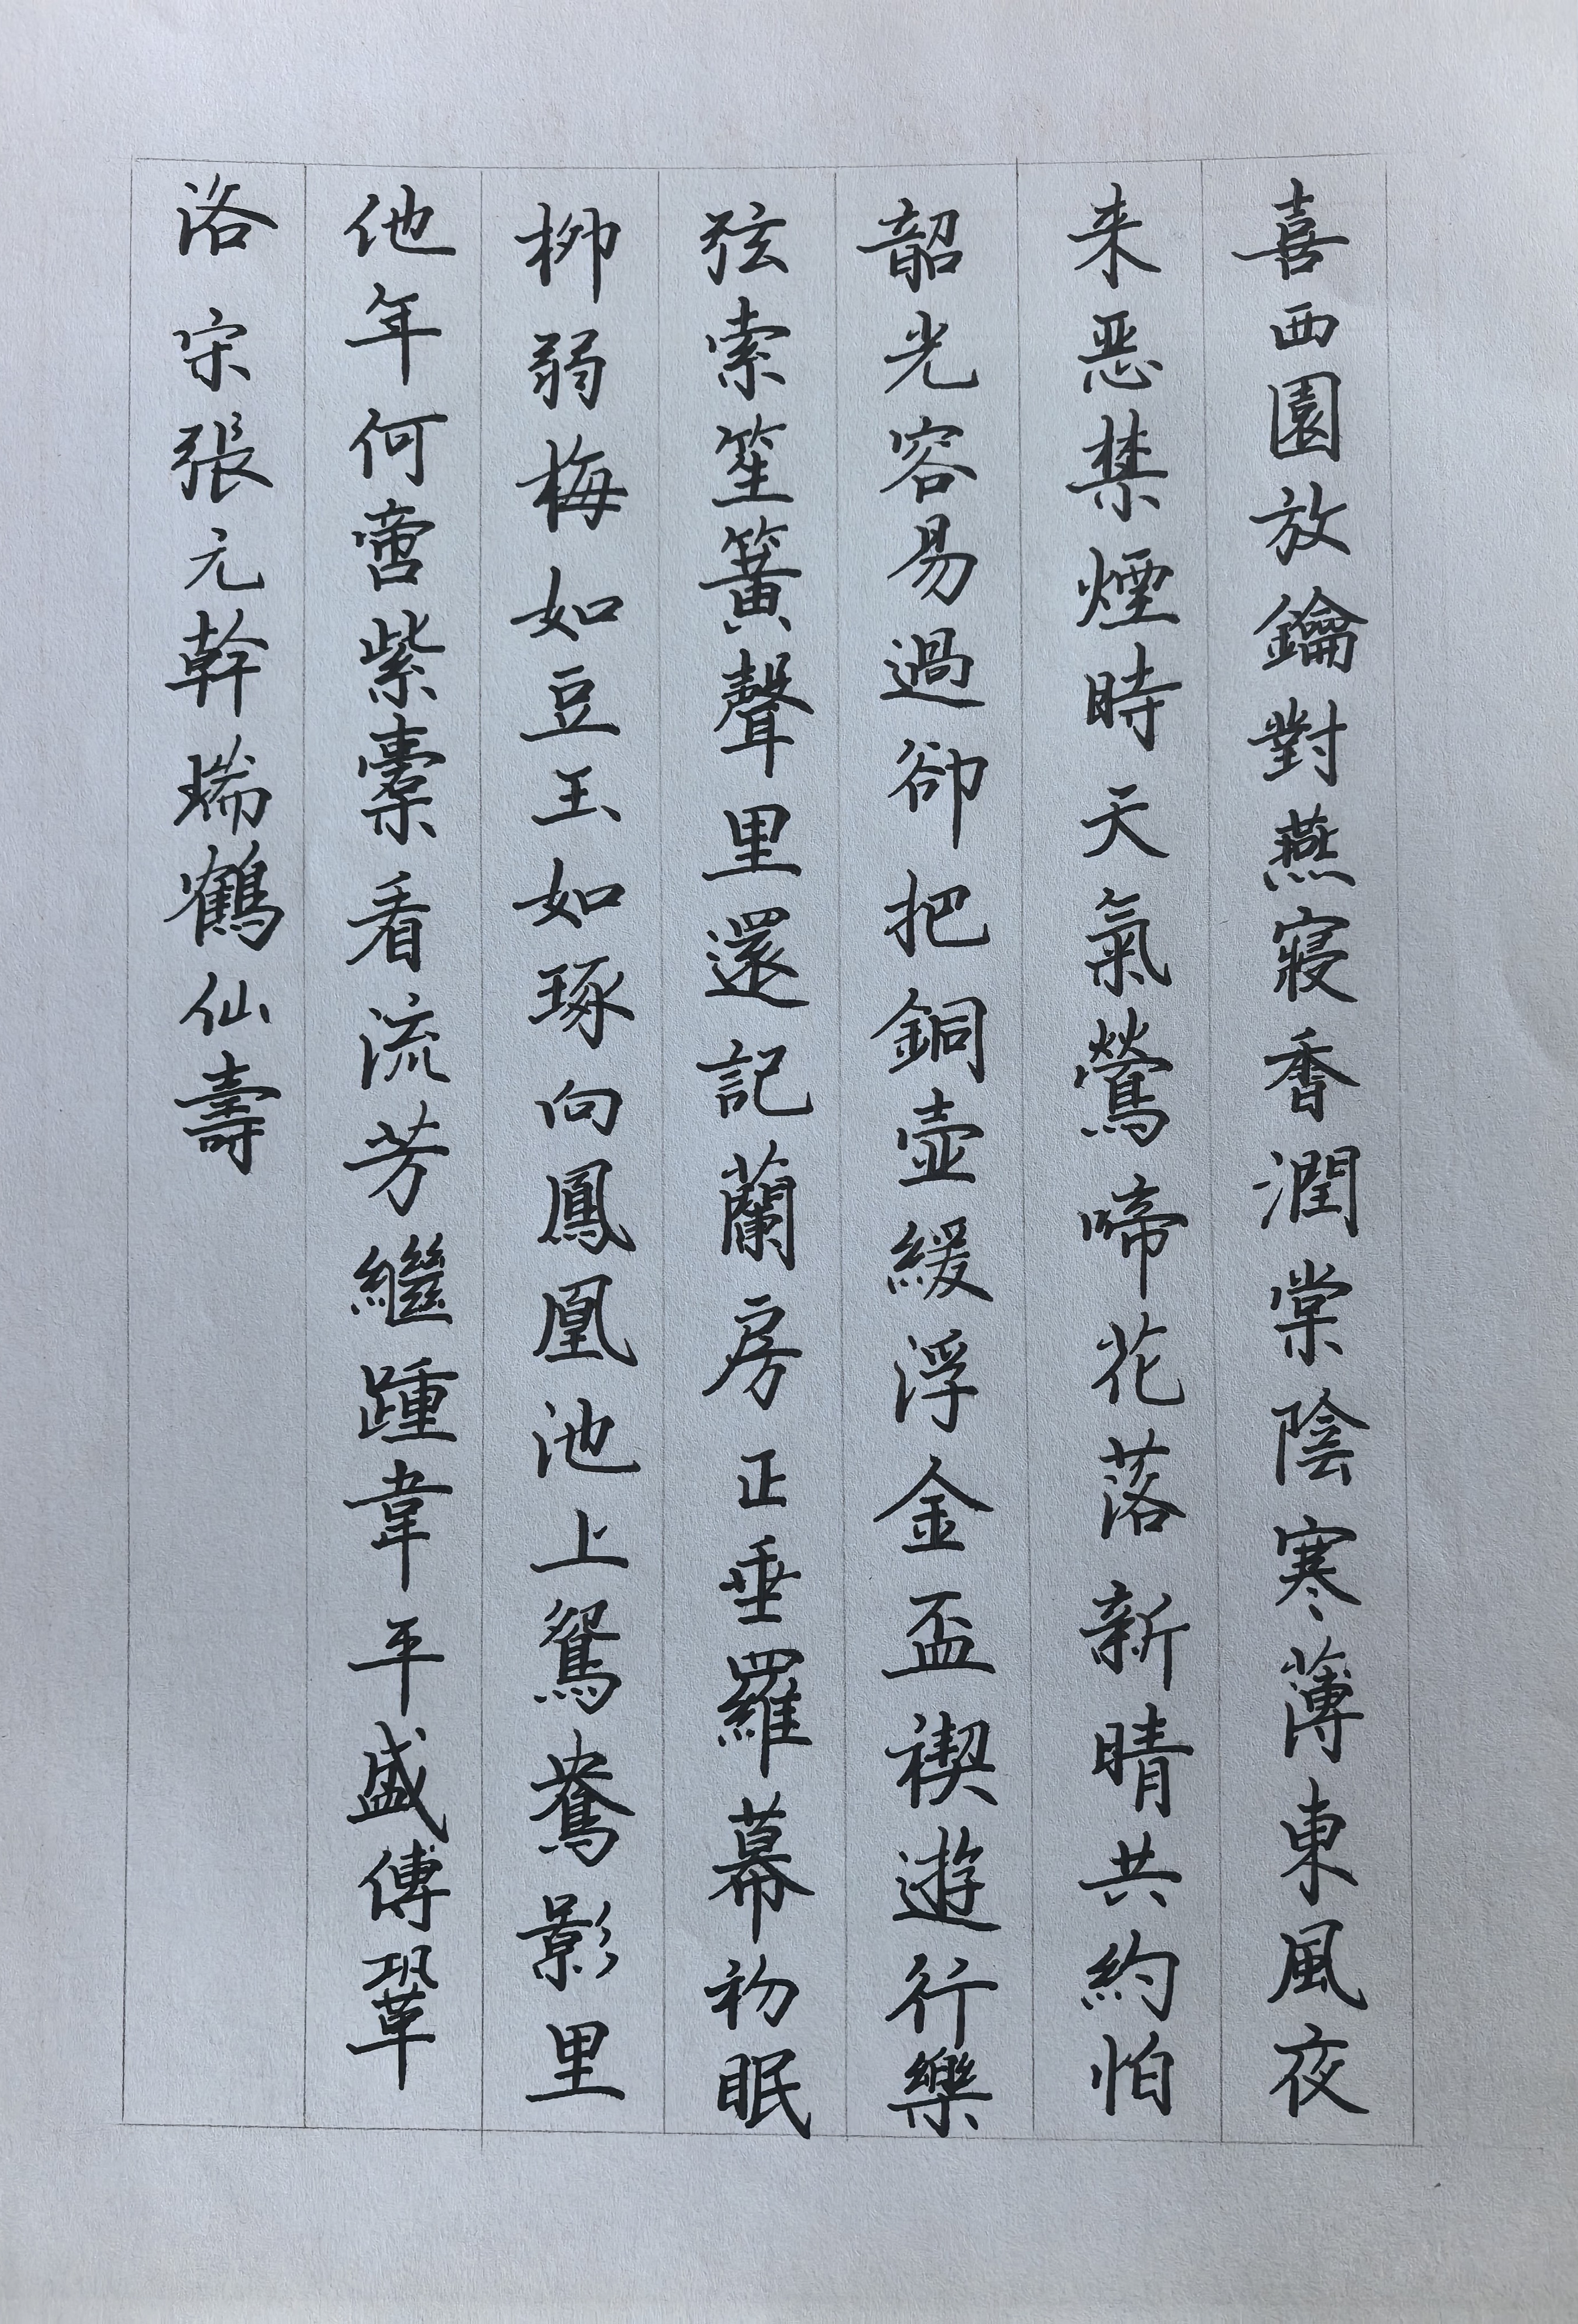 喜西園放鑰對燕寢香潤棠陰寒薄東風夜
来恶禁煙時天氣鶯啼花落新晴共約怕
韶光容易過卻把銅壺緩浮金盃禊遊行樂
弦索笙簧聲里還記蘭房正垂羅幕初眠
柳弱梅如豆玉如琢向鳳凰池上鴛鴦影里
他年何啻紫橐看流芳繼踵韋平盛傳鞏
洛 宋張元幹瑞鶴仙壽